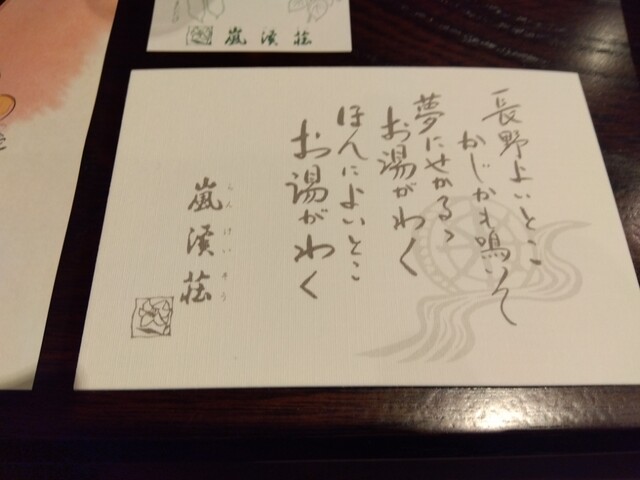 嵐渓荘
長野よいとこ
かじかも鳴いて
夢にせかるゝ
お湯がわく
ほんによいとこ
お湯がわく
嵐渓荘
らんけいそう